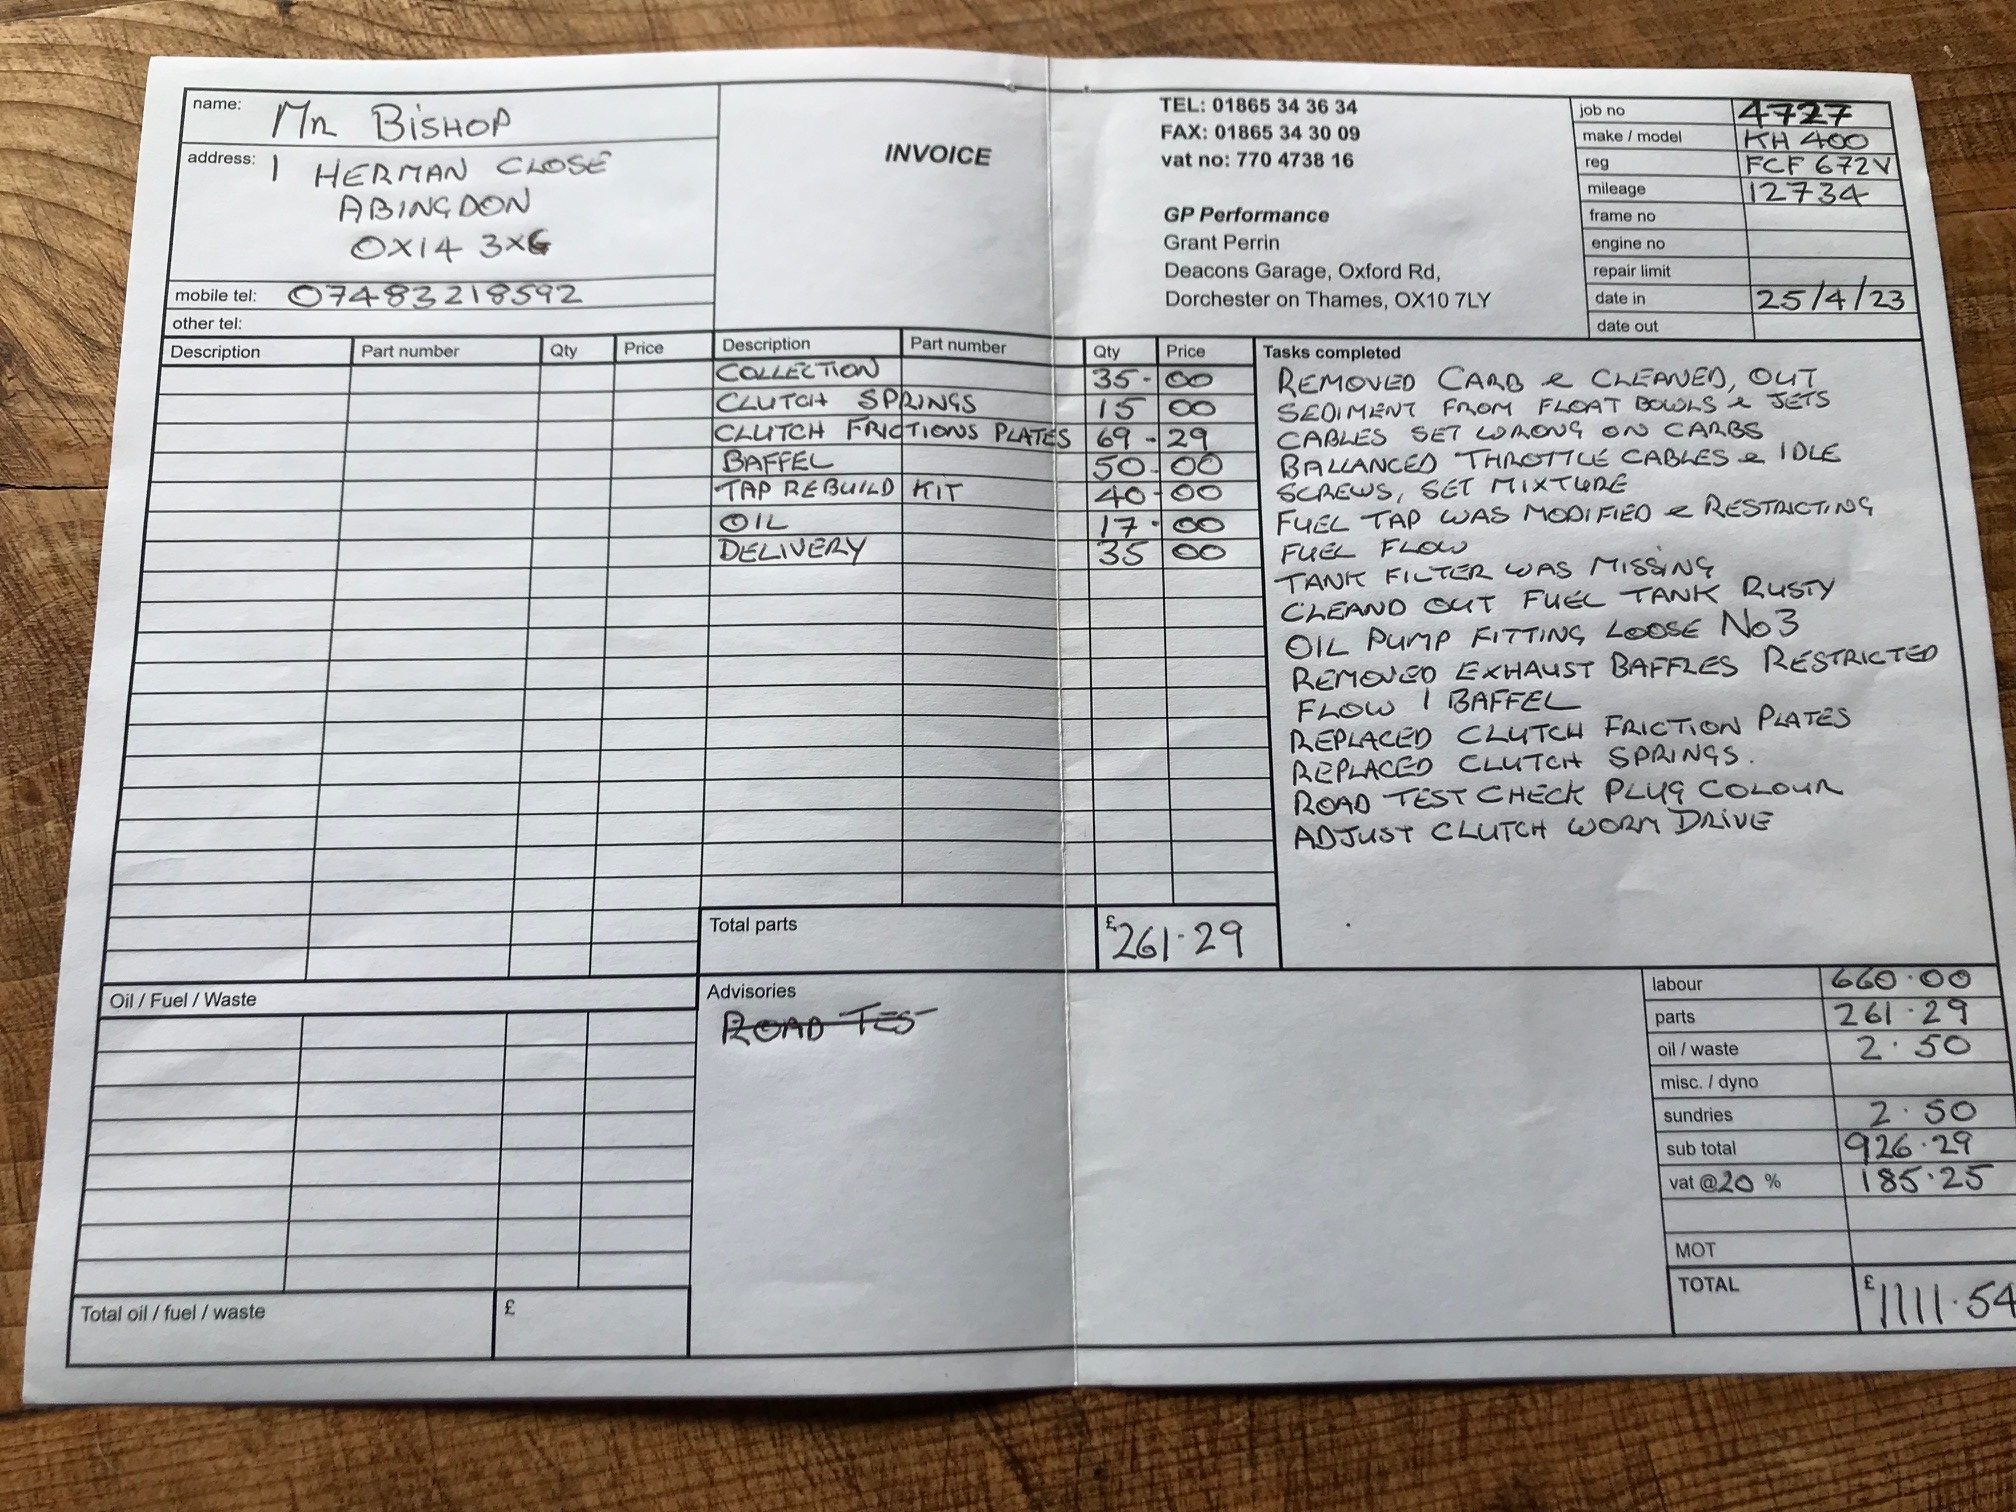 name: Mr BISHOP
address: 1 HERMAN CLOSE
ABINGDON
OX14 3XG
mobile tel: 07483218592
other tel:
INVOICE
TEL: 01865 34 36 34
FAX: 01865 34 30 09
vat no: 770 4738 16
GP Performance
Grant Perrin
Deacons Garage, Oxford Rd,
Dorchester on Thames, OX10 7LY
job no 4727
make / model KH 400
reg FCF 672V
mileage 12734
frame no
engine no
repair limit
date in 25/4/23
date out
Description Part number Qty Price Description Part number Qty Price
COLLECTION 35-00
CLUTCH SPRINGS 15 00
CLUTCH FRICTIONS PLATES 69-29
BAFFEL 50-00
TAP REBUILD KIT 40-00
OIL 17-00
DELIVERY 35 00
Total parts £261·29
Tasks completed
REMOVED CARB & CLEANED, OUT
SEDIMENT FROM FLOAT BOWLS & JETS
CABLES SET WRONG ON CARBS
BALLANCED THROTTLE CABLES & IDLE
SCREWS, SET MIXTURE
FUEL TAP WAS MODIFIED & RESTRICTING
FUEL FLOW
TANK FILTER WAS MISSING
CLEAND OUT FUEL TANK RUSTY
OIL PUMP FITTING LOOSE No 3
REMOVED EXHAUST BAFFLES RESTRICTED
FLOW 1 BAFFEL
REPLACED CLUTCH FRICTION PLATES
REPLACED CLUTCH SPRINGS.
ROAD TEST CHECK PLUG COLOUR
ADJUST CLUTCH WORM DRIVE
Oil / Fuel / Waste
Total oil / fuel / waste £
Advisories
ROAD TES
labour 660·00
parts 261·29
oil / waste 2·50
misc. / dyno
sundries 2·50
sub total 926·29
vat @20 % 185·25
MOT
TOTAL £1111·54